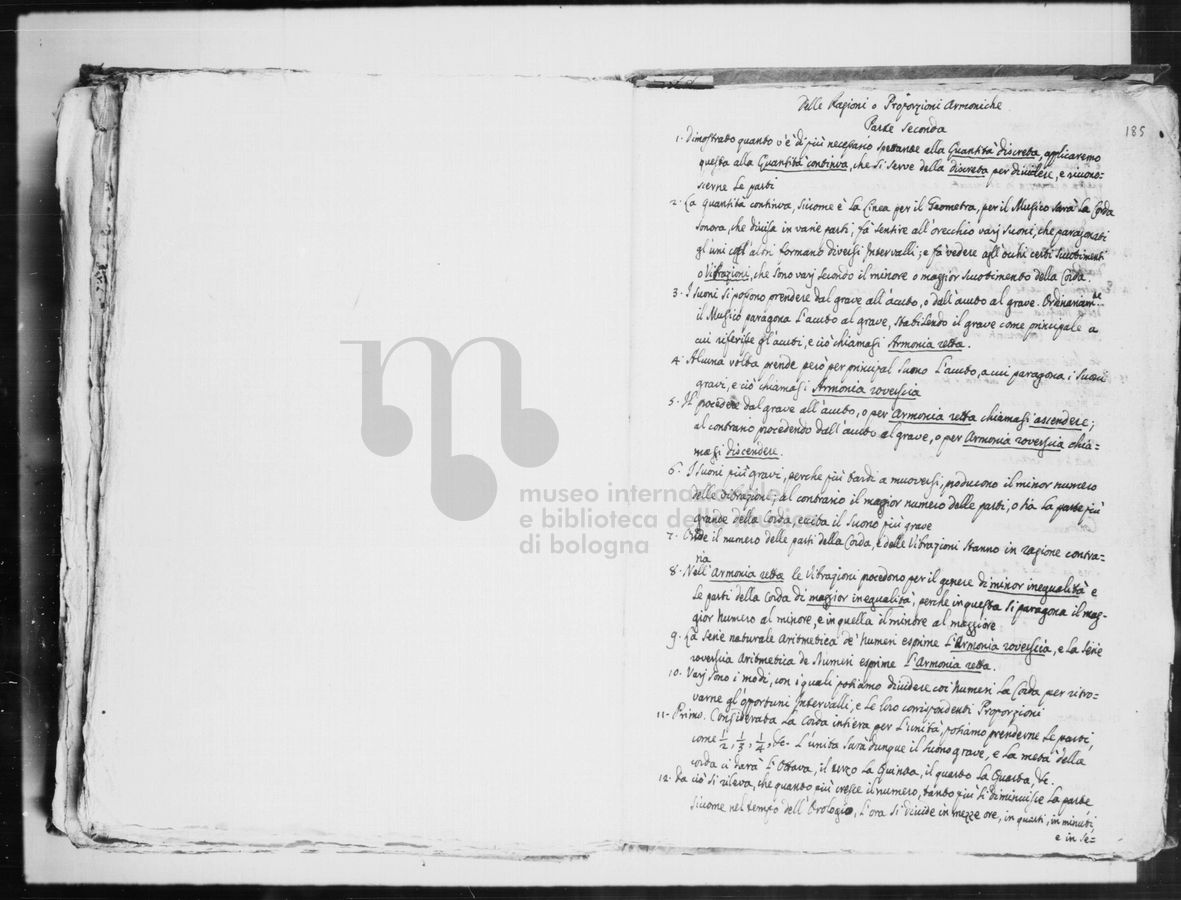 Delle Ragioni o Proporzioni Armoniche
185
Parte Seconda
1. Dimostrato quanto v'è di più necessario spettante alla Quantità discreta, applicaremo
questa alla Quantità continua, che si serve della discreta per dividere, e ricono-
scerne le parti
2. La quantità continua, siccome è la Linea per il Geometra, per il Musico sarà la Corda
sonora, che divisa in varie parti, fà sentire all'orecchio varj suoni, che paragonati
gl'uni cogl'altri formano diversi Intervalli; e fà vedere agl'occhi certi scuotimenti
o Vibrazioni, che sono varj secondo il minore o maggior scuotimento della Corda.
3. I suoni si possono prendere dal grave all'acuto, o dall'acuto al grave. Ordinariamte
il Musico paragona l'acuto al grave, stabilendo il grave come principale a
cui riferisce gl'acuti, e ciò chiamasi Armonia retta.
4. Alcuna volta prende però per principal suono l'acuto, a cui paragona i suoni
gravi, e ciò chiamasi Armonia roverscia
5. Il procedere dal grave all'acuto, o per Armonia retta chiamasi ascendere;
al contrario procedendo dall'acuto al grave, o per Armonia roverscia chia=
masi discendere.
6. I suoni più gravi, perche più tardi a muoversi, producono il minor numero
delle vibrazioni; al contrario il maggior numero delle parti, o sia la parte più
grande della Corda, eccita il suono più grave
7. Onde il numero delle parti della Corda, e delle Vibrazioni stanno in ragione contra-
ria
8. Nell'Armonia retta le Vibrazioni procedono per il genere di minor inegualità e
le parti della Corda di maggior inegualità, perche in questa si paragona il mag-
gior numero al minore, e in quella il minore al maggiore
9. La serie naturale Aritmetica de' Numeri esprime l'Armonia roverscia, e la serie
roverscia Aritmetica de Numeri esprime l'Armonia retta.
10. Varj sono i modi, con i quali possiamo dividere coi Numeri la Corda per ritro-
varne gl'opportuni Intervalli, e le loro corrispondenti Proporzioni
11. Primo. Considerata la Corda intiera per l'unità, possiamo prenderne le parti,
come 1/2, 1/3, 1/4, &c. L'unità sarà dunque il suono grave, e la metà della
corda ci darà l'Ottava, il terzo la Quinta, il quarto la Quarta, &c.
12. Da ciò si rileva, che quanto più cresce il numero, tanto più si diminuisce la parte,
siccome nel tempo dell'Orologio, l'ora si divide in mezze ore, in quarti, in minuti,
e in se=
museo internazionale
e biblioteca della musica
di bologna